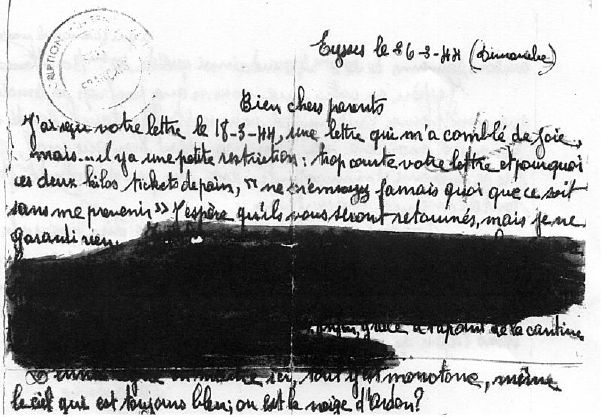 RIPTION
Eysses le 26-3-44 (Dimanche)
Bien chers parents
J'ai reçu votre lettre le 18-3-44, une lettre qui m'a comblé de joie,
mais... il y a une petite restriction : trop courte votre lettre et pourquoi
ces deux kilos tickets de pain, "ne m'envoyez jamais quoi que ce soit
sans me prevenir" J'espère qu'ils vous seront retournés, mais je ne
garanti rien.
grâce à de la cantine
ici, tout y est monotone, même
le ciel qui est toujours bleu, ou est la neige d'